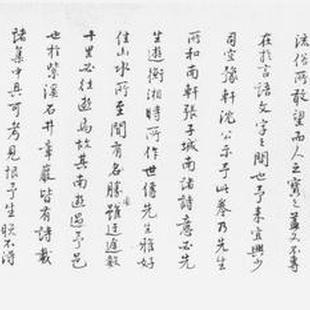 流俗所敢望而人之寶之蓋又不專
在於言語文字之間也予來宜興少
司空豫軒沈公示予此卷乃先生
所和南軒張子城南諸詩意必先
生遊衡湘時所作世傳先生雅好
佳山水所至聞有名勝雖迂途數
十里必往遊焉故其南遊過予邑
也於紫溪石井章巖皆有詩載
諸集中具可考見恨予生晚不得